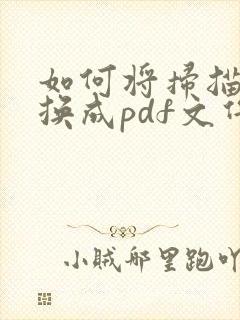 如何将扫描
换成pdf文件
小贼哪里跑吖